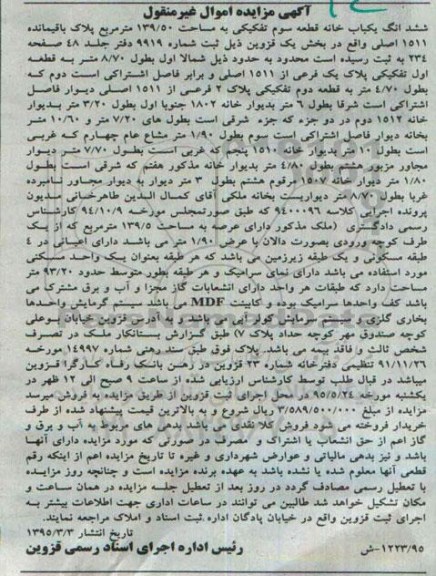 آگهی مزایده اموال غیرمنقول
ششد انگ یکباب خانه قطعه سوم تفکیکی به مساحت ۱۳۹/۵۰ مترمربع پلاک باقیمانده
۱۵۱۱ اصلی واقع در بخش یک قزوین ذیل ثبت شماره ۹۹۱۹ دفتر جلد ۴۸ صفحه
۲۳۴ به ثبت رسیده است محدود به حدود ذیل شمالا اول بطول ۸/۷۰ متر به قطعه
اول تفکیکی پلاک یک فرعی از ۱۵۱۱ اصلی و برابر فاصل اشتراکی است دوم که
بطول ۴/۷۰ متر به قطعه دوم تفکیکی پلاک ۲ فرعی از ۱۵۱۱ اصلی دیوار فاصل
اشتراکی است شرقا بطول ۶ متر بدیوار خانه ۱۸۰۲ جنوبا اول بطول ۳/۲۰ متر بدیوار
خانه ۱۵۱۲ دوم در دو جزء که جزء شرقی است بطول های ۷/۲۰ متر و ۱۰/۶۰ متر
بخانه دیوار فاصل اشتراکی است سوم بطول ۱/۹۰ متر مشاع عام چهارم که غربی
است بطول متر بدیوار خانه ۱۵۱۰ پنجم که غربی است بطول ۷/۷۰ متر دیوار
مجاور مزبور هشتم بطول ۴/۸۰ متر بدیوار خانه مذکور هفتم که شرقی است بطول
۱/۸۰ متر دیوار خانه ۱۵۰۷ مرقوم هشتم بطول ۳ متر دیوار به دیوار مجاور نامبرده
غربا بطول ۸/۷۰ متر دیواریست بخانه ملکی آقای کمال الدین طاهرخانی مدیون
پرونده اجرایی کلاسه ۹۴۰۰۰۹۶ که طبق صورتمجلس مورخه ۹۴/۱۰/۹ کارشناس
رسمی دادگستری (ملک مذکور دارای عرصه به مساحت ۱۳۹/۵ مترمربع که از یک
طرف کوچه ورودی بصورت دالان با عرض ۱/۹۰ متر می باشد دارای اعیانی در ۴
طبقه مسکونی و یک طبقه زیرزمین می باشد که هر طبقه بعنوان یک واحد مسکونی
مورد استفاده می باشد دارای نمای سرامیک و هر طبقه بطور متوسط حدود ۹۳/۲۰ متر
مساحت دارد که طبقات هر واحد دارای انشعابات گاز مجزا و آب و برق مشترک می
باشد کف واحدها سرامیک بوده و کابینت MDF می باشد سیستم گرمایش واحدها
بخاری گازی و سیستم سرمایش کولر آبی می باشد و به آدرس قزوین خیابان بوعلی
کوچه صندوق مهر کوچه حداد پلاک ۷) طبق گزارش بستانکار ملک در تصرف
شخص ثالث و فاقد بیمه می باشد. پلاک فوق طبق سند رهنی شماره ۱۴۹۹۷ مورخه
۹۱/۱۱/۲۶ تنظیمی دفترخانه شماره ۲۳ قزوین در رهن بانک رفاه کارگران قزوین
میباشد در قبال طلب توسط کارشناس ارزیابی شده از ساعت ۹ صبح الی ۱۲ ظهر در
یکشنبه مورخه ۹۵/۵/۲۴ در محل اجرای ثبت قزوین از طریق مزایده به فروش میرسد
مزایده از مبلغ ۳/۵۸۹/۵۰۰/۰۰۰ ریال شروع و به بالاترین قیمت پیشنهاد شده از طرف
خریدار فروخته می شود فروش کلا نقدی می باشد بدهی های مربوط به آب و برق و
گاز اعم از حق انشعاب یا اشتراک و مصرف در صورتی که مورد مزایده دارای آنها
باشد و نیز بدهی مالیاتی و عوارض شهرداری و غیره تا تاریخ مزایده اعم از اینکه رقم
قطعی آنها معلوم شده یا نشده باشد به عهده برنده مزایده است و چنانچه روز مزایده
با تعطیل رسمی مصادف گردد در روز بعد از تعطیل جلسه مزایده در همان ساعت و
مکان تشکیل خواهد شد طالبین می توانند در ساعات اداری جهت اطلاعات بیشتر به
اجرای ثبت قزوین واقع در خیابان پادگان اداره ثبت اسناد و املاک مراجعه نمایند.
تاریخ انتشار ۱۳۹۵/۳/۳
رئیس اداره اجرای اسناد رسمی قزوین
۱۲۲۳/۹۵-ش